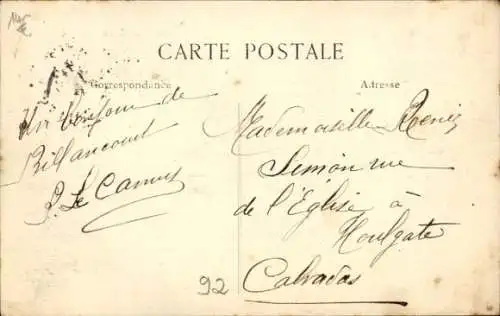 CARTE POSTALE
Correspondance
Adresse
Un bonjour de
Billancourt
P. Le Camus
Mademoiselle Renée
Simon rue
de l'Eglise à
Houlgate
Calvados
92